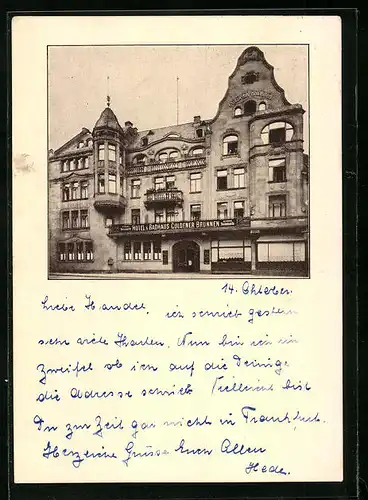 HOTEL & BADHAUS GOLDENER BRUNNEN
14. Oktober.
Liebe ich schrieb gestern
sehr viele Karten. Nun bin ich im
Zweifel ob ich auf die Deinige
die Adresse schrieb. Vielleicht bist
Du zur Zeit gar nicht in Frankfurt.
Herzliche Grüsse Euch Allen
Hede.